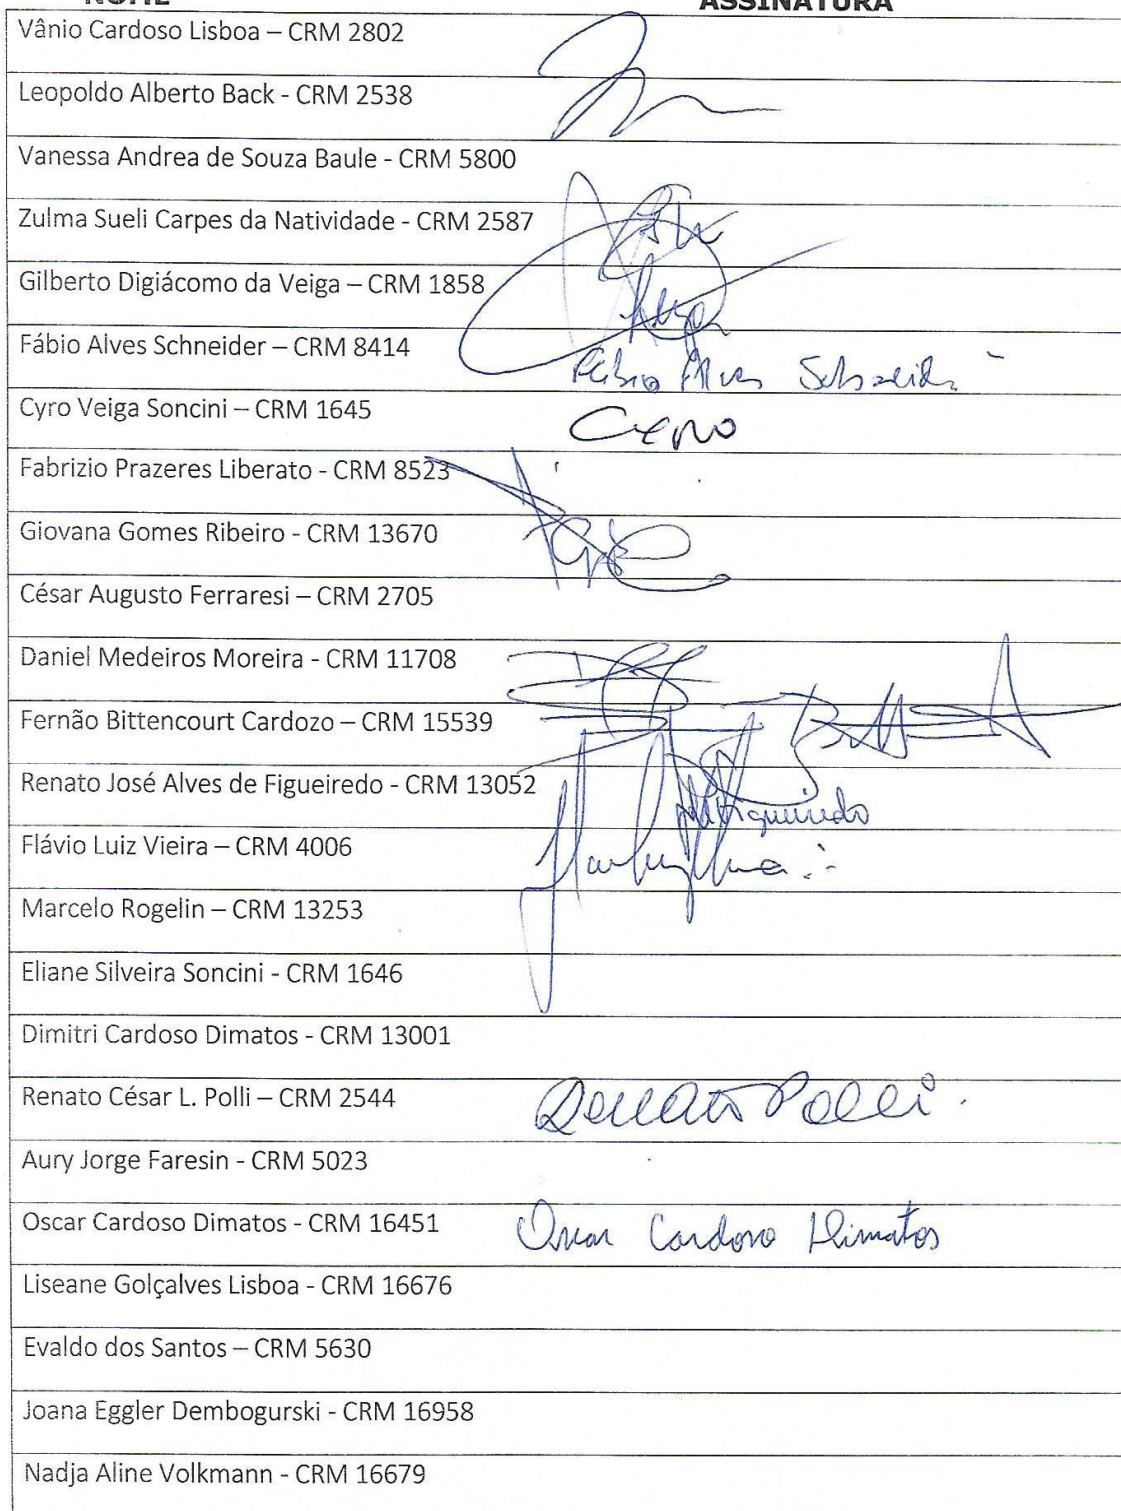 NOME ASSINATURA
Vânio Cardoso Lisboa – CRM 2802
Leopoldo Alberto Back - CRM 2538
Vanessa Andrea de Souza Baule - CRM 5800
Zulma Sueli Carpes da Natividade - CRM 2587
Gilberto Digiácomo da Veiga – CRM 1858
Fábio Alves Schneider – CRM 8414 Fábio Alves Schneider
Cyro Veiga Soncini – CRM 1645 Cyro
Fabrizio Prazeres Liberato - CRM 8523
Giovana Gomes Ribeiro - CRM 13670
César Augusto Ferraresi – CRM 2705
Daniel Medeiros Moreira - CRM 11708
Fernão Bittencourt Cardozo – CRM 15539
Renato José Alves de Figueiredo - CRM 13052 Figueiredo
Flávio Luiz Vieira – CRM 4006
Marcelo Rogelin – CRM 13253
Eliane Silveira Soncini - CRM 1646
Dimitri Cardoso Dimatos - CRM 13001
Renato César L. Polli – CRM 2544 Renato Polli.
Aury Jorge Faresin - CRM 5023
Oscar Cardoso Dimatos - CRM 16451 Oscar Cardoso Dimatos
Liseane Golçalves Lisboa - CRM 16676
Evaldo dos Santos – CRM 5630
Joana Eggler Dembogurski - CRM 16958
Nadja Aline Volkmann - CRM 16679